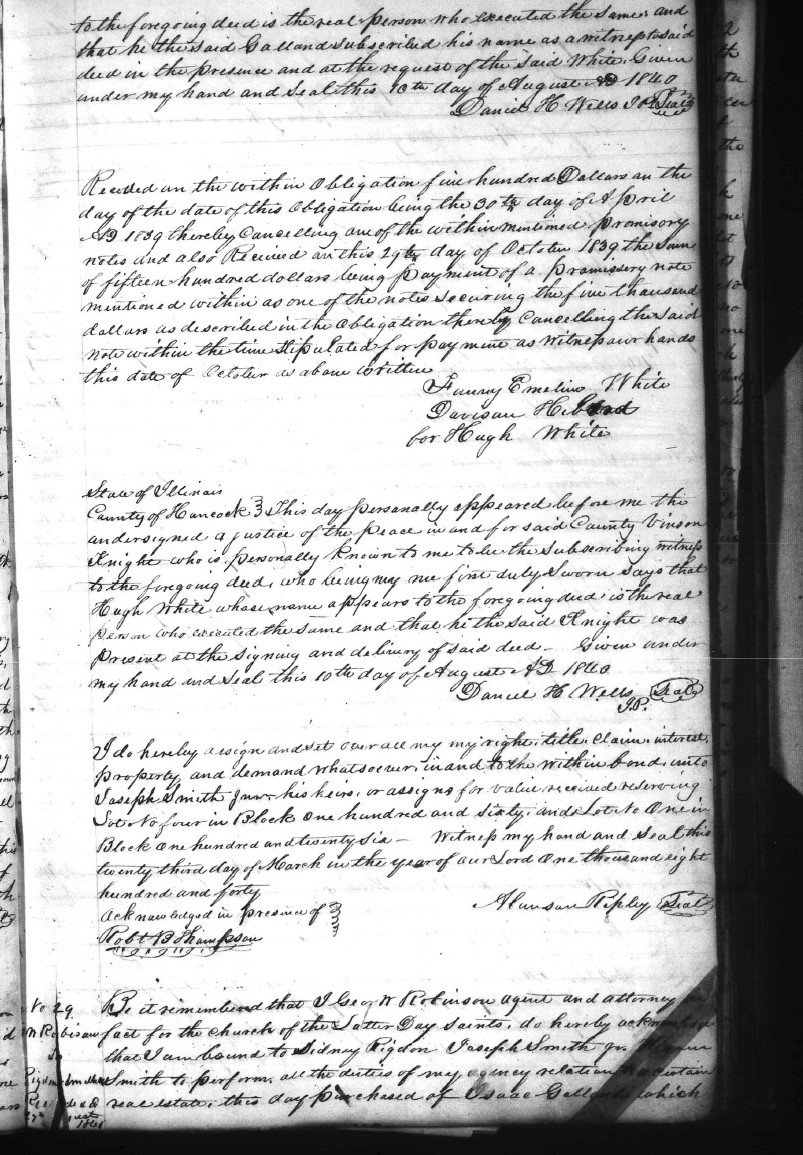 to the foregoing deed is the real person who executed the same and
that he the said Galland subscribed his name as a witness to said
deed in the presence and at the request of the said White. Given
under my hand and seal this 10th day of August AD 1840
Daniel H Wells J.P. Seal
Received on the within Obligation five hundred Dollars on the
day of the date of this Obligation being the 30th day of April
AD 1839 thereby Cancelling one of the within mentioned promisory
notes and also Received on this 29th day of October 1839 the Sum
of fifteen hundred dollars being payment of a promissory note
mentioned within as one of the notes securing the five thousand
dollars as described in the Obligation thereby Cancelling the said
note within the time stipulated for payment as witness our hands
this date of October as above written
Fanny Emeline White
Davison Hibard
for Hugh White
State of Illinois
County of Hancock } This day personally appeared before me the
undersigned a justice of the peace in and for said County Vinson
Knight who is personally known to me to be the Subscribing witness
to the foregoing deed, who being my me first duly Sworn Says that
Hugh White whose name appears to the foregoing deed is the real
person who executed the same and that he the said Knight was
present at the signing and delivery of said deed — Given under
my hand and seal this 10th day of August AD 1840
Daniel H Wells Seal
J.P.
I do hereby assign and set over all my my right, title, claim, interest,
property, and demand whatsoever, in and to the within bond, unto
Joseph Smith Junr. his heirs, or assigns for value received reserving
Lot No four in Block one hundred and sixty, and Lot No One in
Block one hundred and twenty six — Witness my hand and seal this
twenty third day of March in the year of our Lord One thousand eight
hundred and forty
acknowledged in presence of }
Alanson Ripley Seal
Robt B Thompson
No 29
Be it remembered that I Geo W Robinson agent and attorney in
fact for the church of the Latter Day Saints, do hereby acknowledge
that I am bound to Sidney Rigdon Joseph Smith Jr. Hyrum
Smith to perform all the duties of my agency relation to a certain
real estate, this day purchased of Isaac Galland which
W Robison
To
Rigdon Smith
Recorded
August
1840